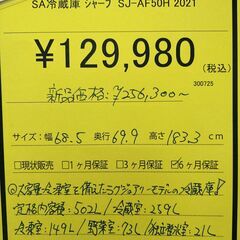 SA冷蔵庫 シャープ SJ-AF50H 2021
¥129,980
(税込)
300725
新品価格:¥256,300~
サイズ:幅68.5 奥行69.9 高さ183.3 cm
□現状販売 □1ヶ月保証 □3ヶ月保証 ☑6ヶ月保証
大容量冷凍室を備えたラグジュアリーモデルの冷蔵庫!
定格内容積:502L/冷蔵室:259L
冷凍室:149L/野菜室:73L/独立製氷室:21L